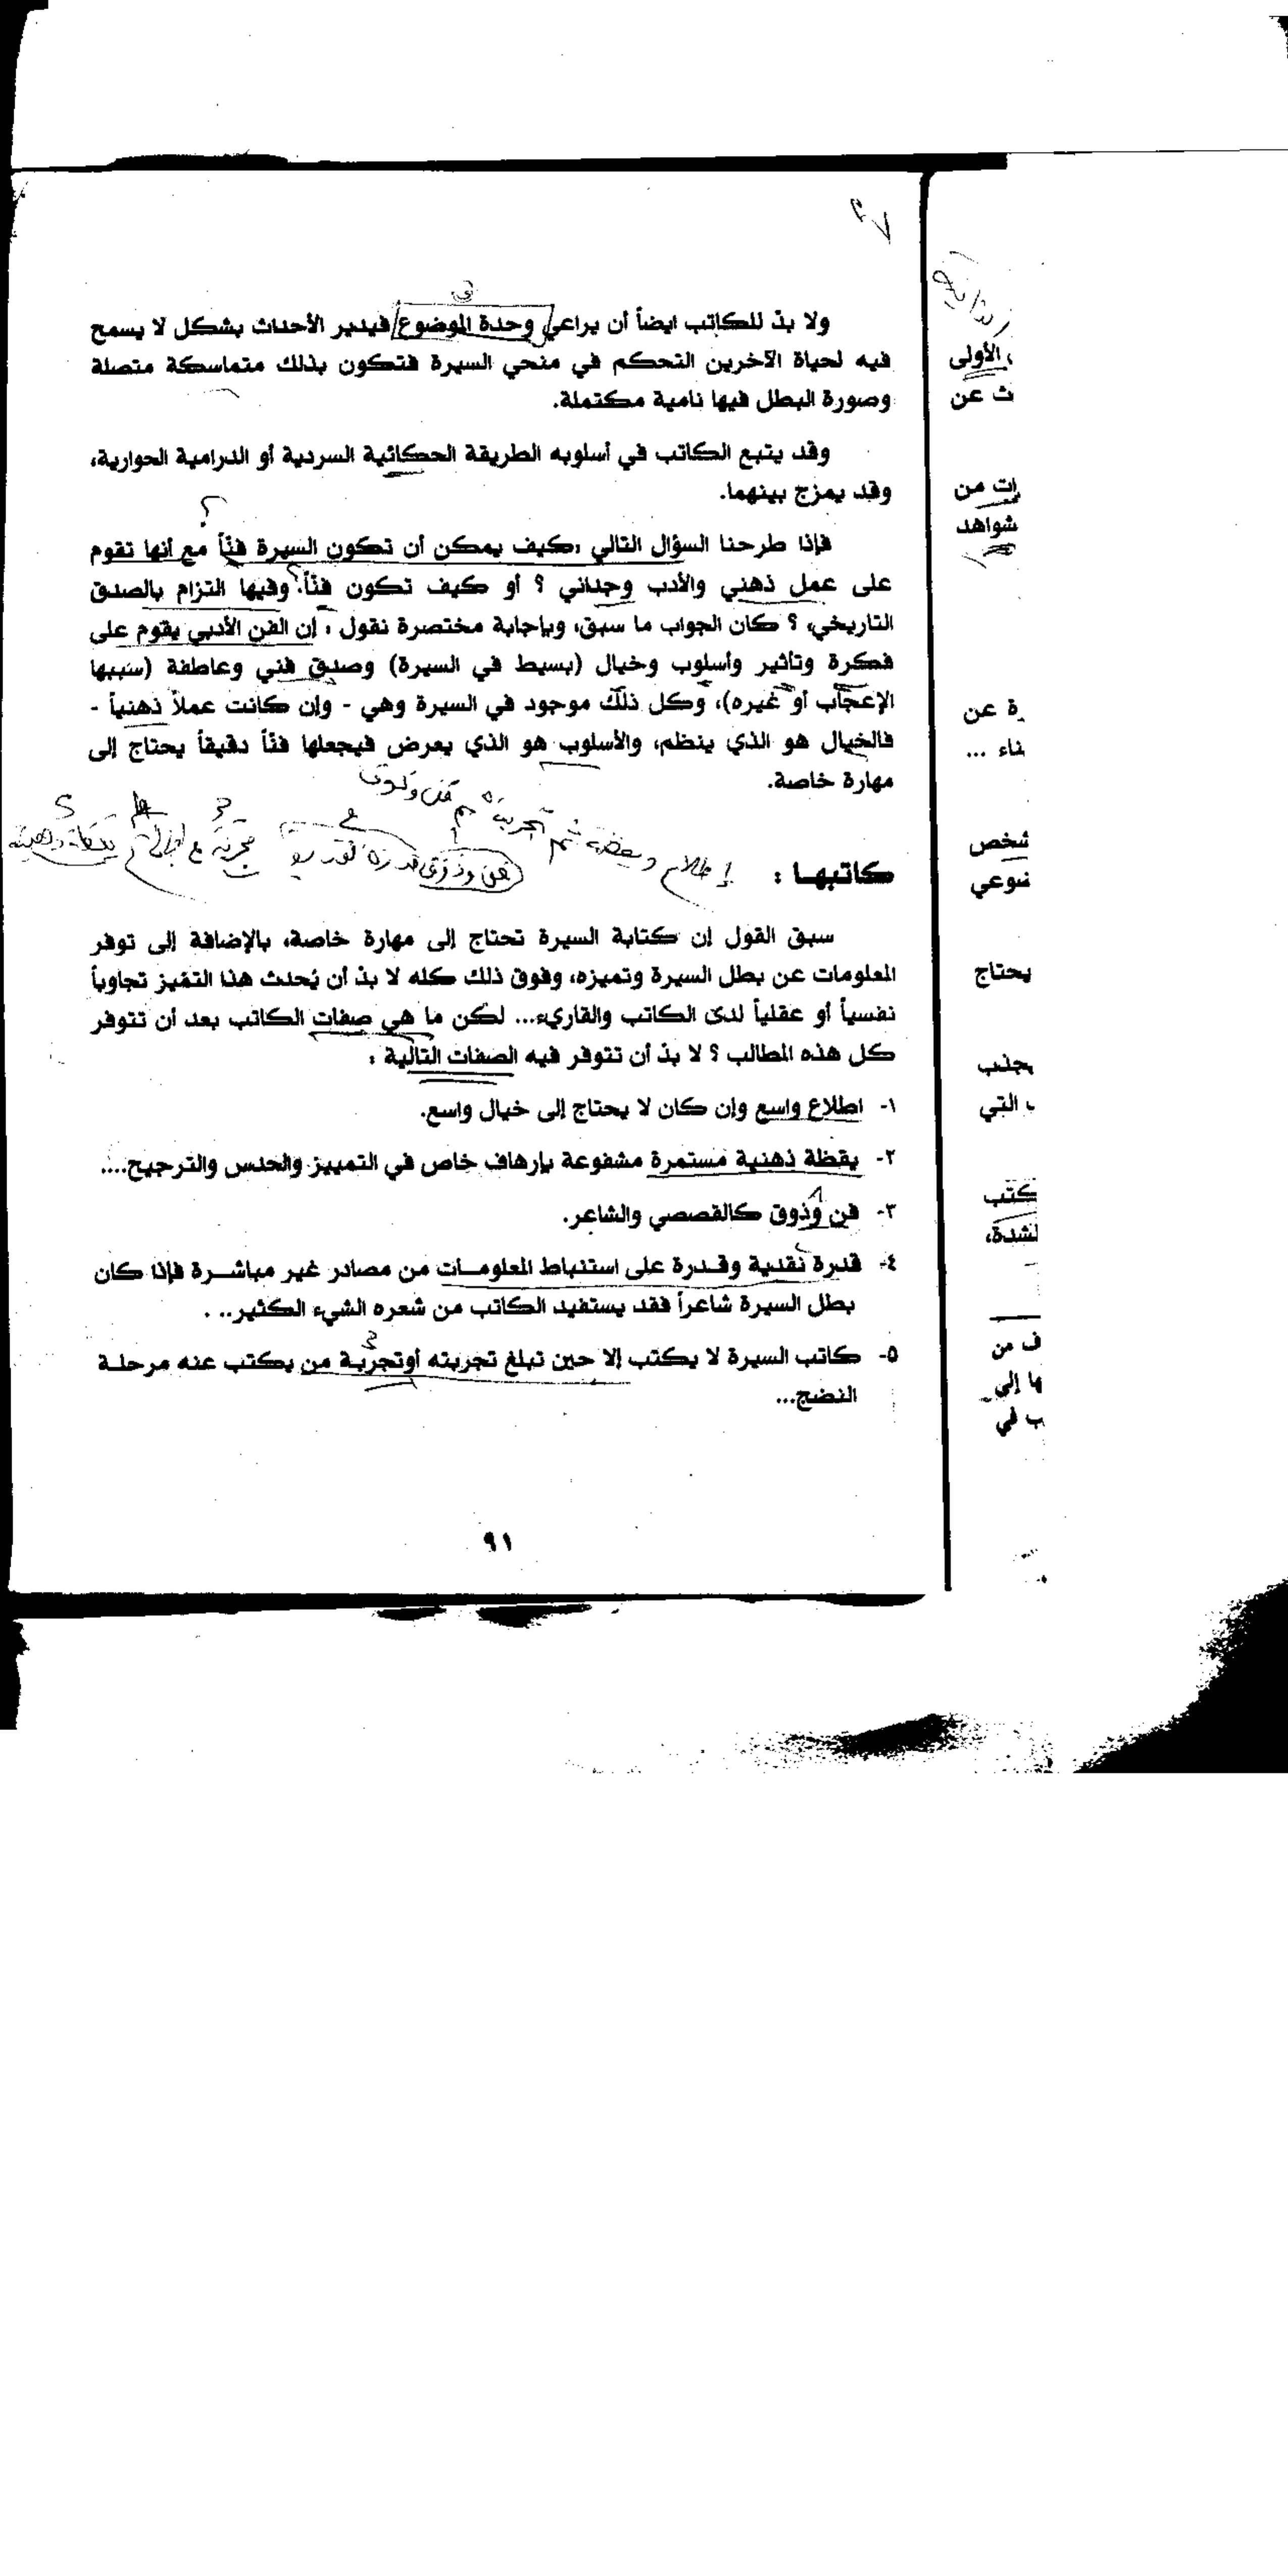 ولا بدّ للكاتب ايضاً أن يراعي وحدة الموضوع فيدير الأحداث بشكل لا يسمح
فيه لحياة الآخرين التحكم في منحي السيرة فتكون بذلك متماسكة متصلة
وصورة البطل فيها نامية مكتملة.
وقد يتبع الكاتب في أسلوبه الطريقة الحكائية السردية أو الدرامية الحوارية،
وقد يمزج بينهما.
؟
فإذا طرحنا السؤال التالي :كيف يمكن أن تكون السيرة فنّاً مع أنها تقوم
على عمل ذهني والأدب وجداني ؟ أو كيف تكون فنّاً. وفيها التزام بالصدق
التاريخي، ؟ كان الجواب ما سبق، وبإجابة مختصرة نقول : إن الفن الأدبي يقوم على
فكرة وتأثير وأسلوب وخيال (بسيط في السيرة) وصدق فني وعاطفة (سببها
الإعجاب أو غيره)، وكل ذلك موجود في السيرة وهي - وإن كانت عملاً ذهنياً -
فالخيال هو الذي ينظم، والأسلوب هو الذي يعرض فيجعلها فنّاً دقيقاً يحتاج إلى
مهارة خاصة.
كاتبها :
سبق القول إن كتابة السيرة تحتاج إلى مهارة خاصة، بالإضافة إلى توفر
المعلومات عن بطل السيرة وتميزه، وفوق ذلك كله لا بدّ أن يُحدث هذا التميز تجاوباً
نفسياً أو عقلياً لدى الكاتب والقاريء... لكن ما هي صفات الكاتب بعد أن تتوفر
كل هذه المطالب ؟ لا بدّ أن تتوفر فيه الصفات التالية :
١- اطلاع واسع وإن كان لا يحتاج إلى خيال واسع.
٢- يقظة ذهنية مستمرة مشفوعة بإرهاف خاص في التمييز والحدس والترجيح....
٣- فن وذوق كالقصصي والشاعر.
٤- قدرة نقدية وقدرة على استنباط المعلومات من مصادر غير مباشرة فإذا كان
بطل السيرة شاعراً فقد يستفيد الكاتب من شعره الشيء الكثير.. .
٥- كاتب السيرة لا يكتب إلا حين تبلغ تجربته أوتجربة من يكتب عنه مرحلة
النضج...
٩١
الأولى
ث عن
ات من
شواهد
رة عن
ناء ...
شخص
ضوعي
يحتاج
يجذب
التي
كتب
لشدة،
ف من
ها إلى
ب في